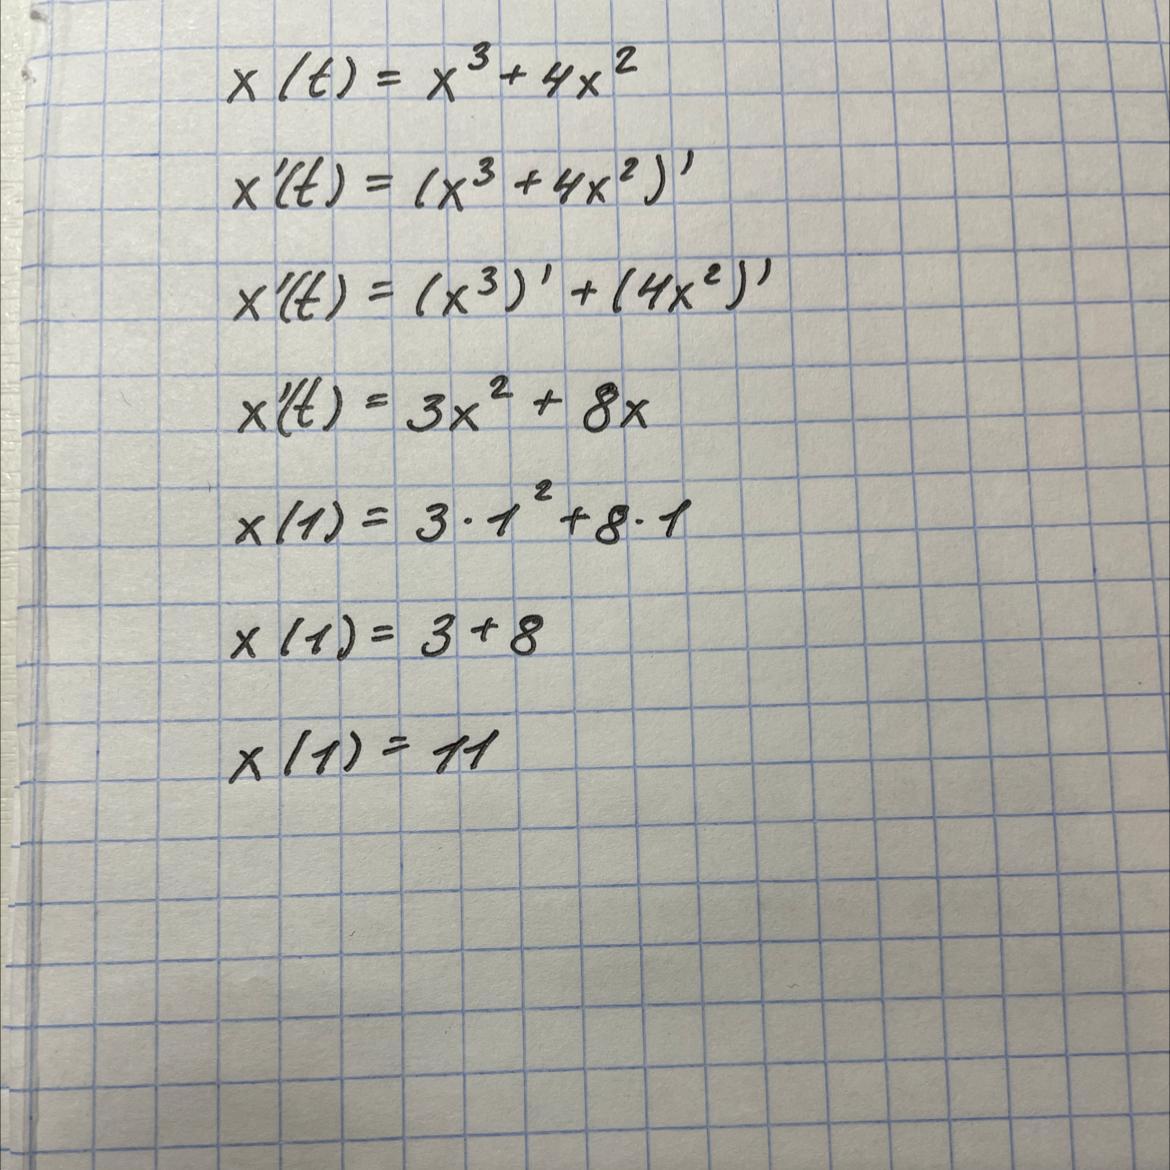 x(t) = x³ + 4x²
x'(t) = (x³ + 4x²)'
x'(t) = (x³)' + (4x²)'
x'(t) = 3x² + 8x
x(1) = 3 · 1² + 8 · 1
x(1) = 3 + 8
x(1) = 11